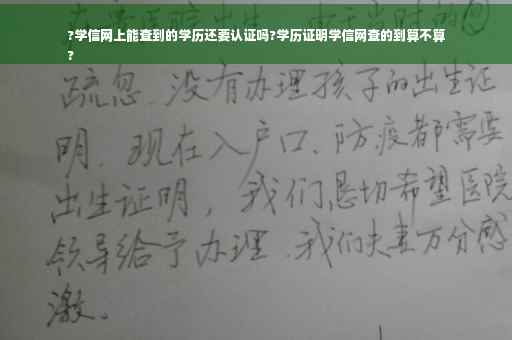 ?学信网上能查到的学历还要认证吗?学历证明学信网查的到算不算
?
在
医院
由于当时的
疏忽、没有办理孩子的出生证
明、现在入户口、防疫都需要
出生证明，我们恳切希望医院
领导给予办理、我们夫妻万分感
激。